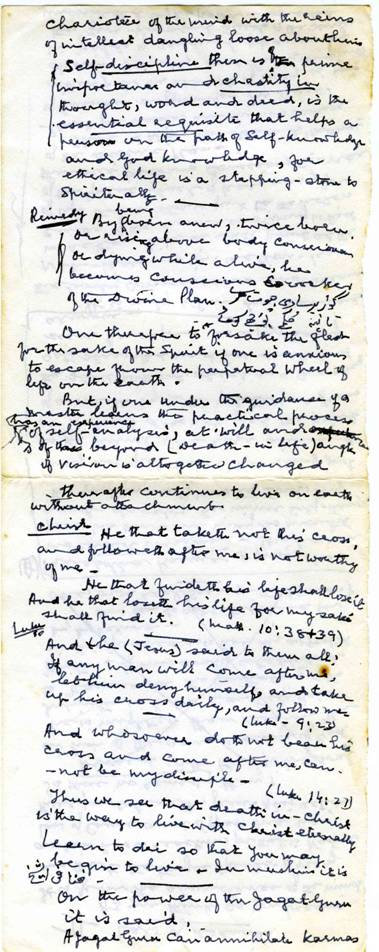 charioteer of the mind with the reins
of intellect dangling loose about him
Self-discipline then is of prime
importance and chastity in
thought, word and deed, is the
essential requisite that helps a
person on the path of Self-knowledge
and God knowledge, for
ethical life is a stepping-stone to
Spirituality.
Remedy By being born anew, twice born.
or rising above body consciousness
or dying while alive, he
becomes conscious coworker
of the Divine Plan.
One therefore to forsake the flesh
for the sake of the Spirit if one is anxious
to escape from the perpetual wheel of
life on the earth.
But, if one under the guidance of a
master learns this practical process
of self analysis, at will and
has an experience
of the beyond (Death-in life) angle
of vision is altogether changed
thereafter continues to live on earth
without attachment.
Christ He that taketh not his cross,
and followeth after me, is not worthy
of me -
He that findeth his life shall lose it
And he that loseth his life for my sake
shall find it. (Matt. 10:38+39)
Luke
And he (Jesus) said to them all,
If any man will come after me,
let him deny himself, and take
up his cross daily, and follow me
(Luke - 9:23)
And whosoever doth not bear his
cross and come after me, can-
-not be my disciple -
(Luke 14:27)
Thus we see that death in-Christ
is the way to live with Christ eternally
Learn to die so that you may
begin to live - In muslims it is
On the power of the Jagat Guru
it is said:
A Jagat Guru can annihilate Karmas